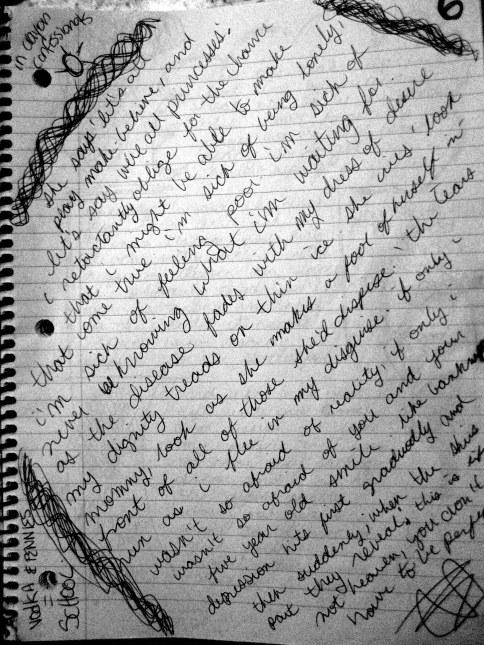 6
in crayon
confessions
she says 'let's all
play make-believe, and
let's say we're all princesses.'
i reluctantly oblige for the chance
that i might be able to make
that come true i'm sick of being lonely,
i'm sick of feeling poor i'm sick of
never knowing what i'm waiting for.
as the disease fades with my dress of desire
my dignity treads on thin ice she cries, 'look
mommy, look as she makes a fool of herself in
front of all of those she'd dispose.' the tears
run as i flee in my disguise. if only i
wasn't so afraid of reality, if only i
wasn't so afraid of you and your
five year old smile. like
depression hits first gradually and
then suddenly, when the
part they reveal: this is
not heaven, you don't
have to be
VODKA & PENNIES
=
SCHOOL